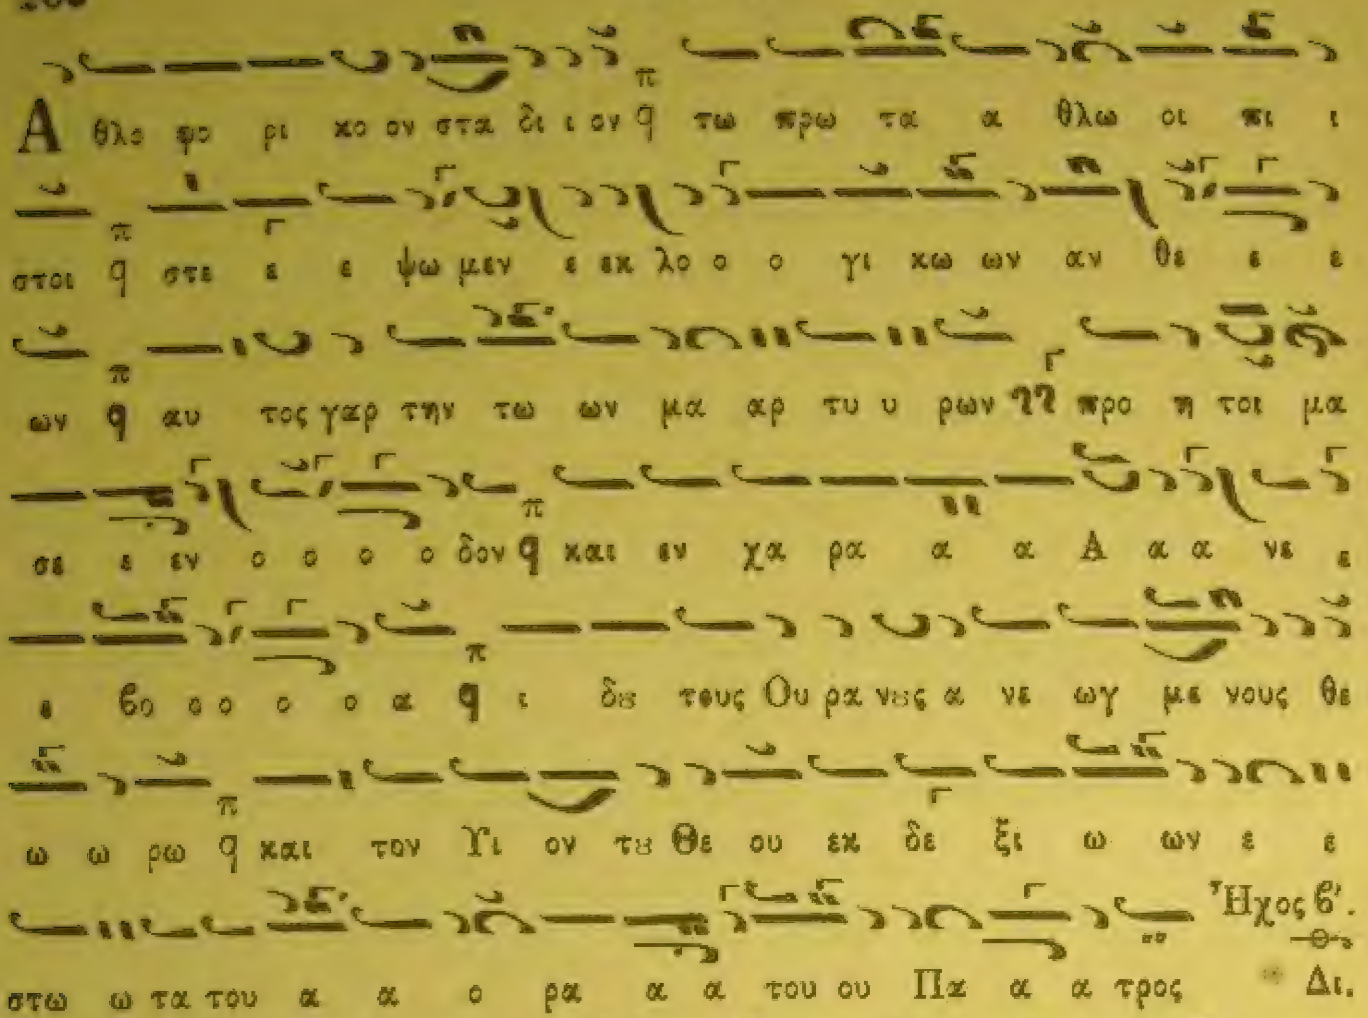 Α θλο φο ρι κο ον στα δι ι ον π̣ϥ τω πρω τα α θλω οι πι ι
στοι ϥ στε ε ε ψω μεν ε εκ λο ο ο γι κω ων αν θε ε ε
ων ϥ αυ τος γαρ την τω ων μα αρ τυ υ ρων προ η τοι μα
σε ε εν ο ο ο ο δον ϥ και εν χα ρα α α Α α α νε ε
ε βο ο ο ο ο α ϥ ι δȣ τους Ου ρα νȣς α νε ωγ με νους θε
ω ω ρω ϥ και τον Υι ον τȣ Θε ου εκ δε ξι ω ων ε ε
Ἦχος β'.
στω ω τα του α α ο ρα α α του ου Πα α α τρος Δι.